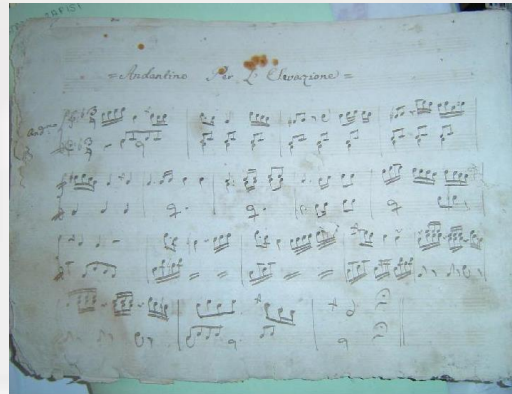 = Andantino Per L' Elevazione =
And.no